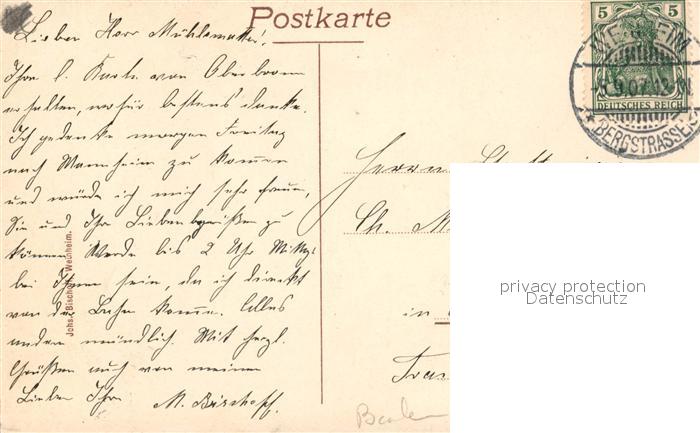 Postkarte
Lieber Herr
Ihre l. Karte von Oberbronn
erhalten, wofür bestens danke.
Ich gedenke morgen Freitag
nach Mannheim zu kommen
und würde ich mich sehr freuen,
Sie und Ihr Lieben begrüßen zu
können. Werde bis 2 Uhr Mittg.
bei Ihnen sein, da ich direkt
von der Bahn komme. Alles
andere mündlich. Mit herzl.
Grüßen auch von meinen
Lieben Ihr
M. Bischoff.
Johs. Bischoff, Weinheim.
5 5
DEUTSCHES REICH
WEINHEIM
5.9.07.12
* BERGSTRASSE *
Herrn
Ch. M
in
privacy protection
Datenschutz